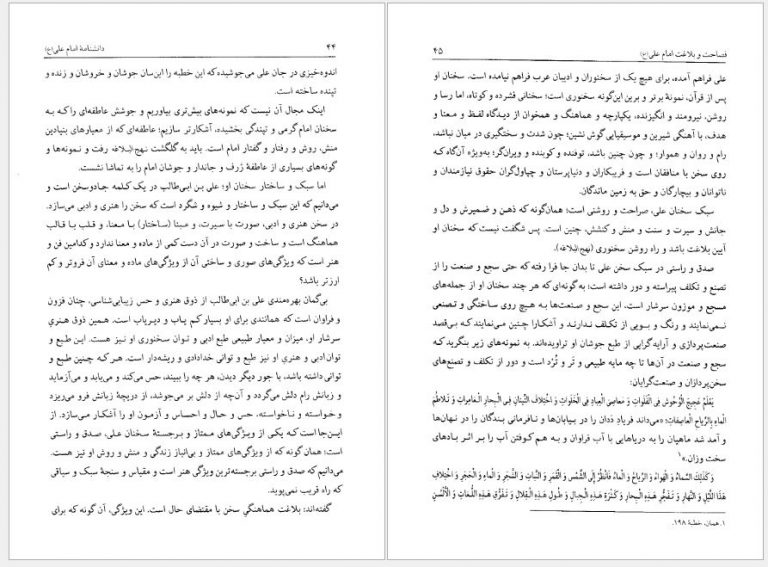 ۴۴
دانشنامهٔ امام علی(ع)
اندوه‌خیزی در جان علی می‌جوشیده که این خطبه را این‌سان جوشان و خروشان و زنده و
تپنده ساخته است.
اینک مجال آن نیست که نمونه‌های بیش‌تری بیاوریم و جوشش عاطفه‌ای را که به
سخنان امام گرمی و تپندگی بخشیده، آشکارتر سازیم؛ عاطفه‌ای که از معیارهای بنیادین
منش، روش و رفتار و گفتار امام است. باید به گلگشت نهج‌البلاغه رفت و نمونه‌ها و
گونه‌های بسیاری از عاطفهٔ ژرف و جاندار و جوشان امام را به تماشا نشست.
اما سبک و ساختار سخنان او: علی بن ابی‌طالب در یک کلمه جادوسخن است و
می‌دانیم که این سبک و ساختار و شیوه و شگرد است که سخن را هنری و ادبی می‌سازد.
در سخن هنری و ادبی، صورت با سیرت، و مبنا (ساختار) با معنا، و قلب با قالب
هماهنگ است و ساخت و صورت در آن دست کمی از ماده و معنا ندارد و کدامین فن و
هنر است که ویژگی‌های صوری و ساختی آن از ویژگی‌های ماده و معنای آن فروتر و کم
ارزتر باشد؟
بی‌گمان بهره‌مندی علی بن ابی‌طالب از ذوق هنری و حس زیبایی‌شناسی، چنان فزون
و فراوان است که همانندی برای او بسیار کم یاب و دیریاب است. همین ذوق هنریِ
سرشار او، میزان و معیار طبیعی طبع ادبی و توان سخنوری او نیز هست. این طبع و
توان ادبی و هنری او نیز طبع و توانی خدادادی و ریشه‌دار است. هر که چنین طبع و
توانی داشته باشد، با جور دیگر دیدن، هر چه را ببیند، حس می‌کند و می‌یابد و می‌آزماید
و زبانش رام دلش می‌گردد و آن‌چه از دلش بر می‌جوشد، از دریچهٔ زبانش فرو می‌ریزد
و خواسته و ناخواسته، حس و حال و احساس و آزمون او را آشکار می‌سازد. از
این‌جا است که یکی از ویژگی‌های ممتاز و برجستهٔ سخنان علی، صدق و راستی
است؛ همان گونه که از ویژگی‌های ممتاز و بی‌انباز زندگی و منش و روش او نیز هست.
می‌دانیم که صدق و راستی برجسته‌ترین ویژگی هنر است و مقیاس و سنجهٔ سبک و سیاقی
که راه فریب نمی‌پوید.
گفته‌اند: بلاغت هماهنگی سخن با مقتضای حال است. این ویژگی، آن گونه که برای
فصاحت و بلاغت امام علی(ع)
۴۵
علی فراهم آمده، برای هیچ یک از سخنوران و ادیبان عرب فراهم نیامده است. سخنان او
پس از قرآن، نمونهٔ برتر و برین این‌گونه سخنوری است؛ سخنانی فشرده و کوتاه، اما رسا و
روشن، نیرومند و انگیزنده، یکپارچه و هماهنگ و همخوان از دیدگاه لفظ و معنا و
هدف، با آهنگی شیرین و موسیقیایی گوش نشین؛ چون شدت و سختگیری در میان نباشد،
رام و روان و هموار؛ و چون چنین باشد، توفنده و کوبنده و ویران‌گر؛ به‌ویژه آن‌گاه که
روی سخن با منافقان است و فریبکاران و دنیاپرستان و چپاول‌گران حقوق نیازمندان و
ناتوانان و بیچارگان و حق به زمین ماندگان.
سبک سخنان علی، صراحت و روشنی است؛ همان‌گونه که ذهن و ضمیرش و دل و
جانش و سیرت و سنت و منش و کنشش، چنین است. پس شگفت نیست که سخنان او
آیین بلاغت باشد و راه روشن سخنوری (نهج‌البلاغه).
صدق و راستی در سبک سخن علی تا بدان جا فرا رفته که حتی سجع و صنعت را از
تصنع و تکلف پیراسته و دور داشته است؛ به‌گونه‌ای که هر چند سخنان او از جمله‌های
مسجع و موزون سرشار است، این سجع و صنعت‌ها به هیچ روی ساختگی و تصنعی
نمی‌نمایند و رنگ و بویی از تکلف ندارند و آشکارا چنین می‌نمایند که بی‌قصد
صنعت‌پردازی و آرایه‌گرایی از طبع جوشان او تراویده‌اند. به نمونه‌های زیر بنگرید که
سجع و صنعت در آن‌ها تا چه مایه طبیعی و تَر و تُرد است و دور از تکلف و تصنع‌های
سخن‌پردازان و صنعت‌گرایان:
یَعْلَمُ عَجیجَ الْوُحُوشِ فِی الْفَلَواتِ وَ مَعاصِیَ الْعِبادِ فِی الْخَلَواتِ وَ اخْتِلافَ النّینانِ فِی الْبِحارِ الْغامِراتِ وَ تَلاطُمَ
الْماءِ بِالرّیاحِ الْعاصِفاتِ؛ «می‌داند فریاد دَدان را در بیابان‌ها و نافرمانی بندگان را در نهان‌ها
و آمد شد ماهیان را به دریاهایی با آب فراوان و به هم کوفتن آب را بر اثر بادهای
سخت وزان.»۱
وَ کَذلِکَ السَّماءُ وَ الْهَواءُ وَ الرّیاحُ وَ الْماءُ فَانْظُرْ إِلَی الشَّمْسِ وَ الْقَمَرِ وَ النَّباتِ وَ الشَّجَرِ وَ الْماءِ وَ الْحَجَرِ وَ اخْتِلافِ
هذَا اللَّیْلِ وَ النَّهارِ وَ تَفَجُّرِ هذِهِ الْبِحارِ وَ کَثْرَةِ هذِهِ الْجِبالِ وَ طُولِ هذِهِ الْقِلالِ وَ تَفَرُّقِ هذِهِ اللُّغاتِ وَ الْأَلْسُنِ
۱. همان، خطبهٔ ۱۹۸.